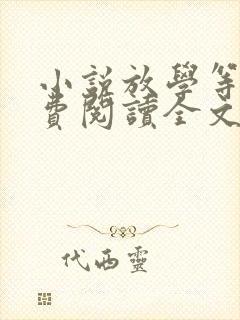 小說放學等
費閱讀全文
代西靈